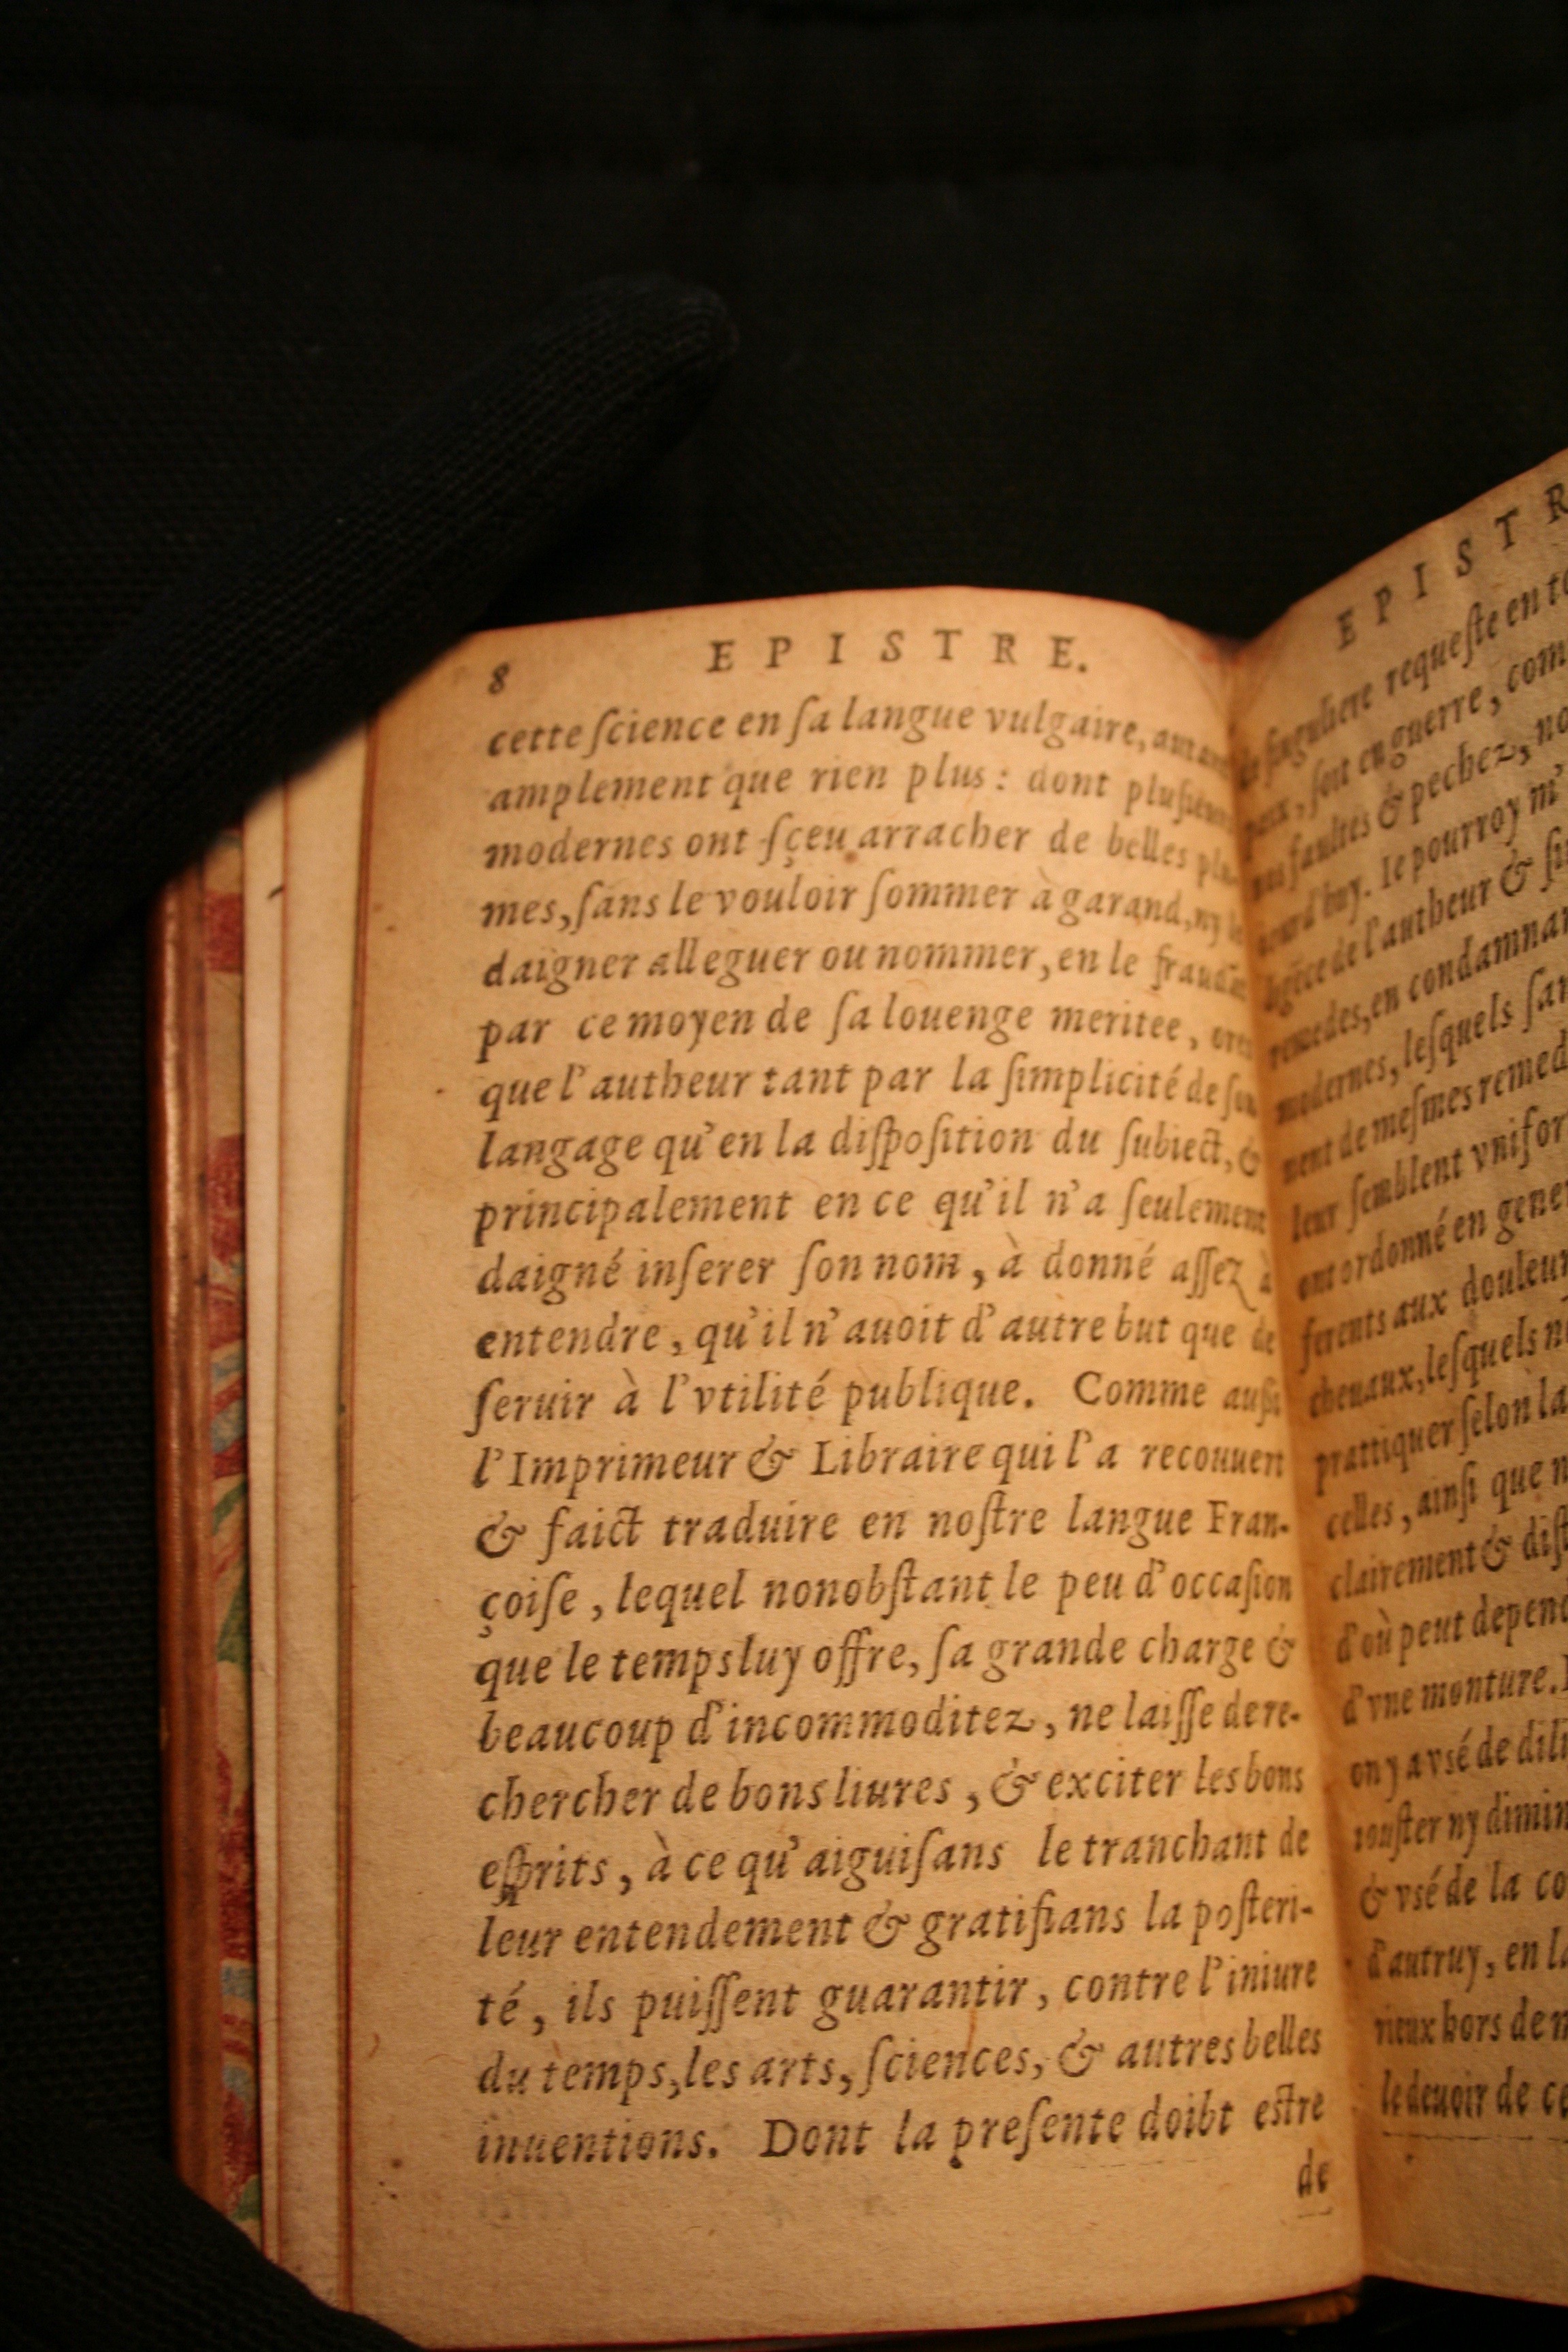 8 EPISTRE.
cette ſcience en ſa langue vulgaire, autant
amplement que rien plus : dont pluſieurs
modernes ont ſçeu arracher de belles plu-
mes, ſans le vouloir ſommer à garand, ny le
daigner alleguer ou nommer, en le
par ce moyen de ſa louenge meritee, ores
que l'autheur tant par la ſimplicité de ſon
langage qu'en la diſpoſition du ſubiect, &
principalement en ce qu'il n'a ſeulement
daigné inſerer ſon nom, à donné aſſez à
entendre, qu'il n'auoit d'autre but que de
ſeruir à l'vtilité publique. Comme auſſi
l'Imprimeur & Libraire qui l'a recouuert
& faict traduire en noſtre langue Fran-
çoiſe, lequel nonobſtant le peu d'occaſion
que le temps luy offre, ſa grande charge &
beaucoup d'incommoditez, ne laiſſe de re-
chercher de bons liures, & exciter les bons
eſprits, à ce qu'aiguiſans le tranchant de
leur entendement & gratifians la poſteri-
té, ils puiſſent guarantir, contre l'iniure
du temps, les arts, ſciences, & autres belles
inuentions. Dont la preſente doibt eſtre
de
EPISTR
ſinguliere requeſte en
ſoit en guerre, com
faultes & pechez,
huy. Ie pourroy m'
de l'autheur & ſi
remedes, en condamnan
modernes, leſquels ſan
nent de meſmes remed
leur ſemblent vnifor
ont ordonné en gene
ferents aux douleur
cheuaux, leſquels
prattiquer ſelon la
celles, ainſi que
clairement & diſt
d'où peut depen
d'vne monture.
on y a vsé de dili
iouſter ny dimin
& vsé de la co
d'autruy, en la
rieux hors de
le deuoir de ce